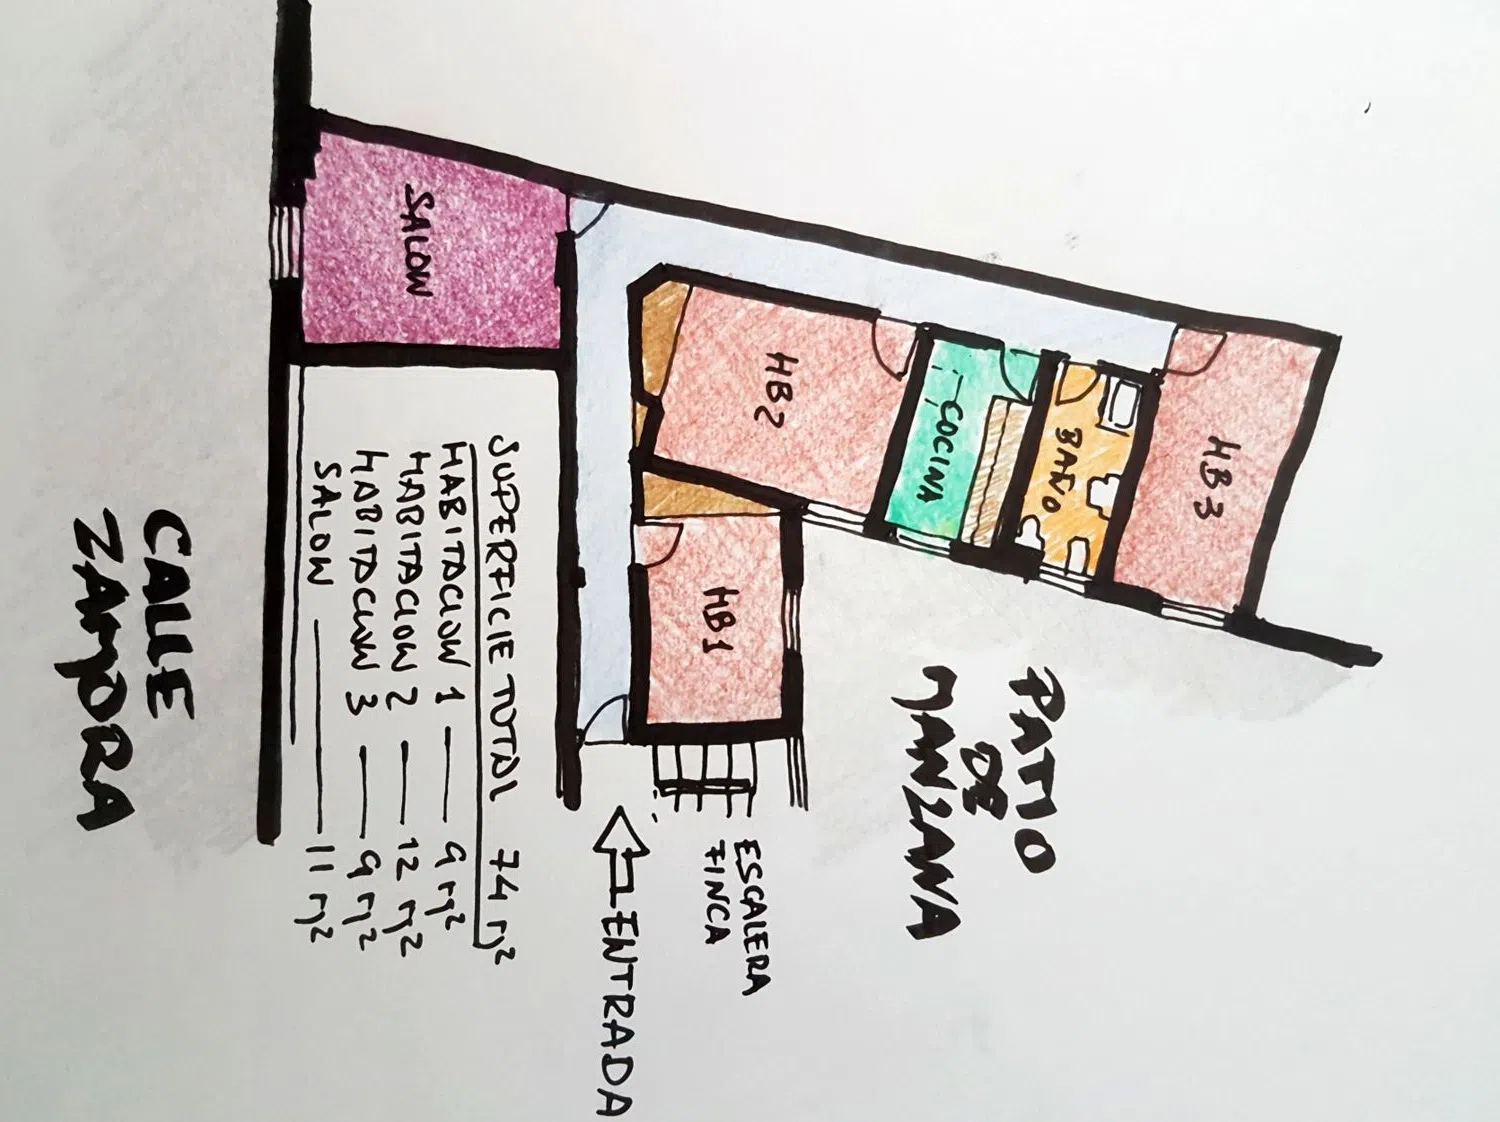 SALON
HB2
COCINA
BAÑO
HB3
HB1
PATIO
DE
MANZANA
ESCALERA
FINCA
ENTRADA
SUPERFICIE TOTAL 74 M²
HABITACION 1 — 9 M²
HABITACION 2 — 12 M²
HABITACION 3 — 9 M²
SALON — 11 M²
CALLE
ZAMORA